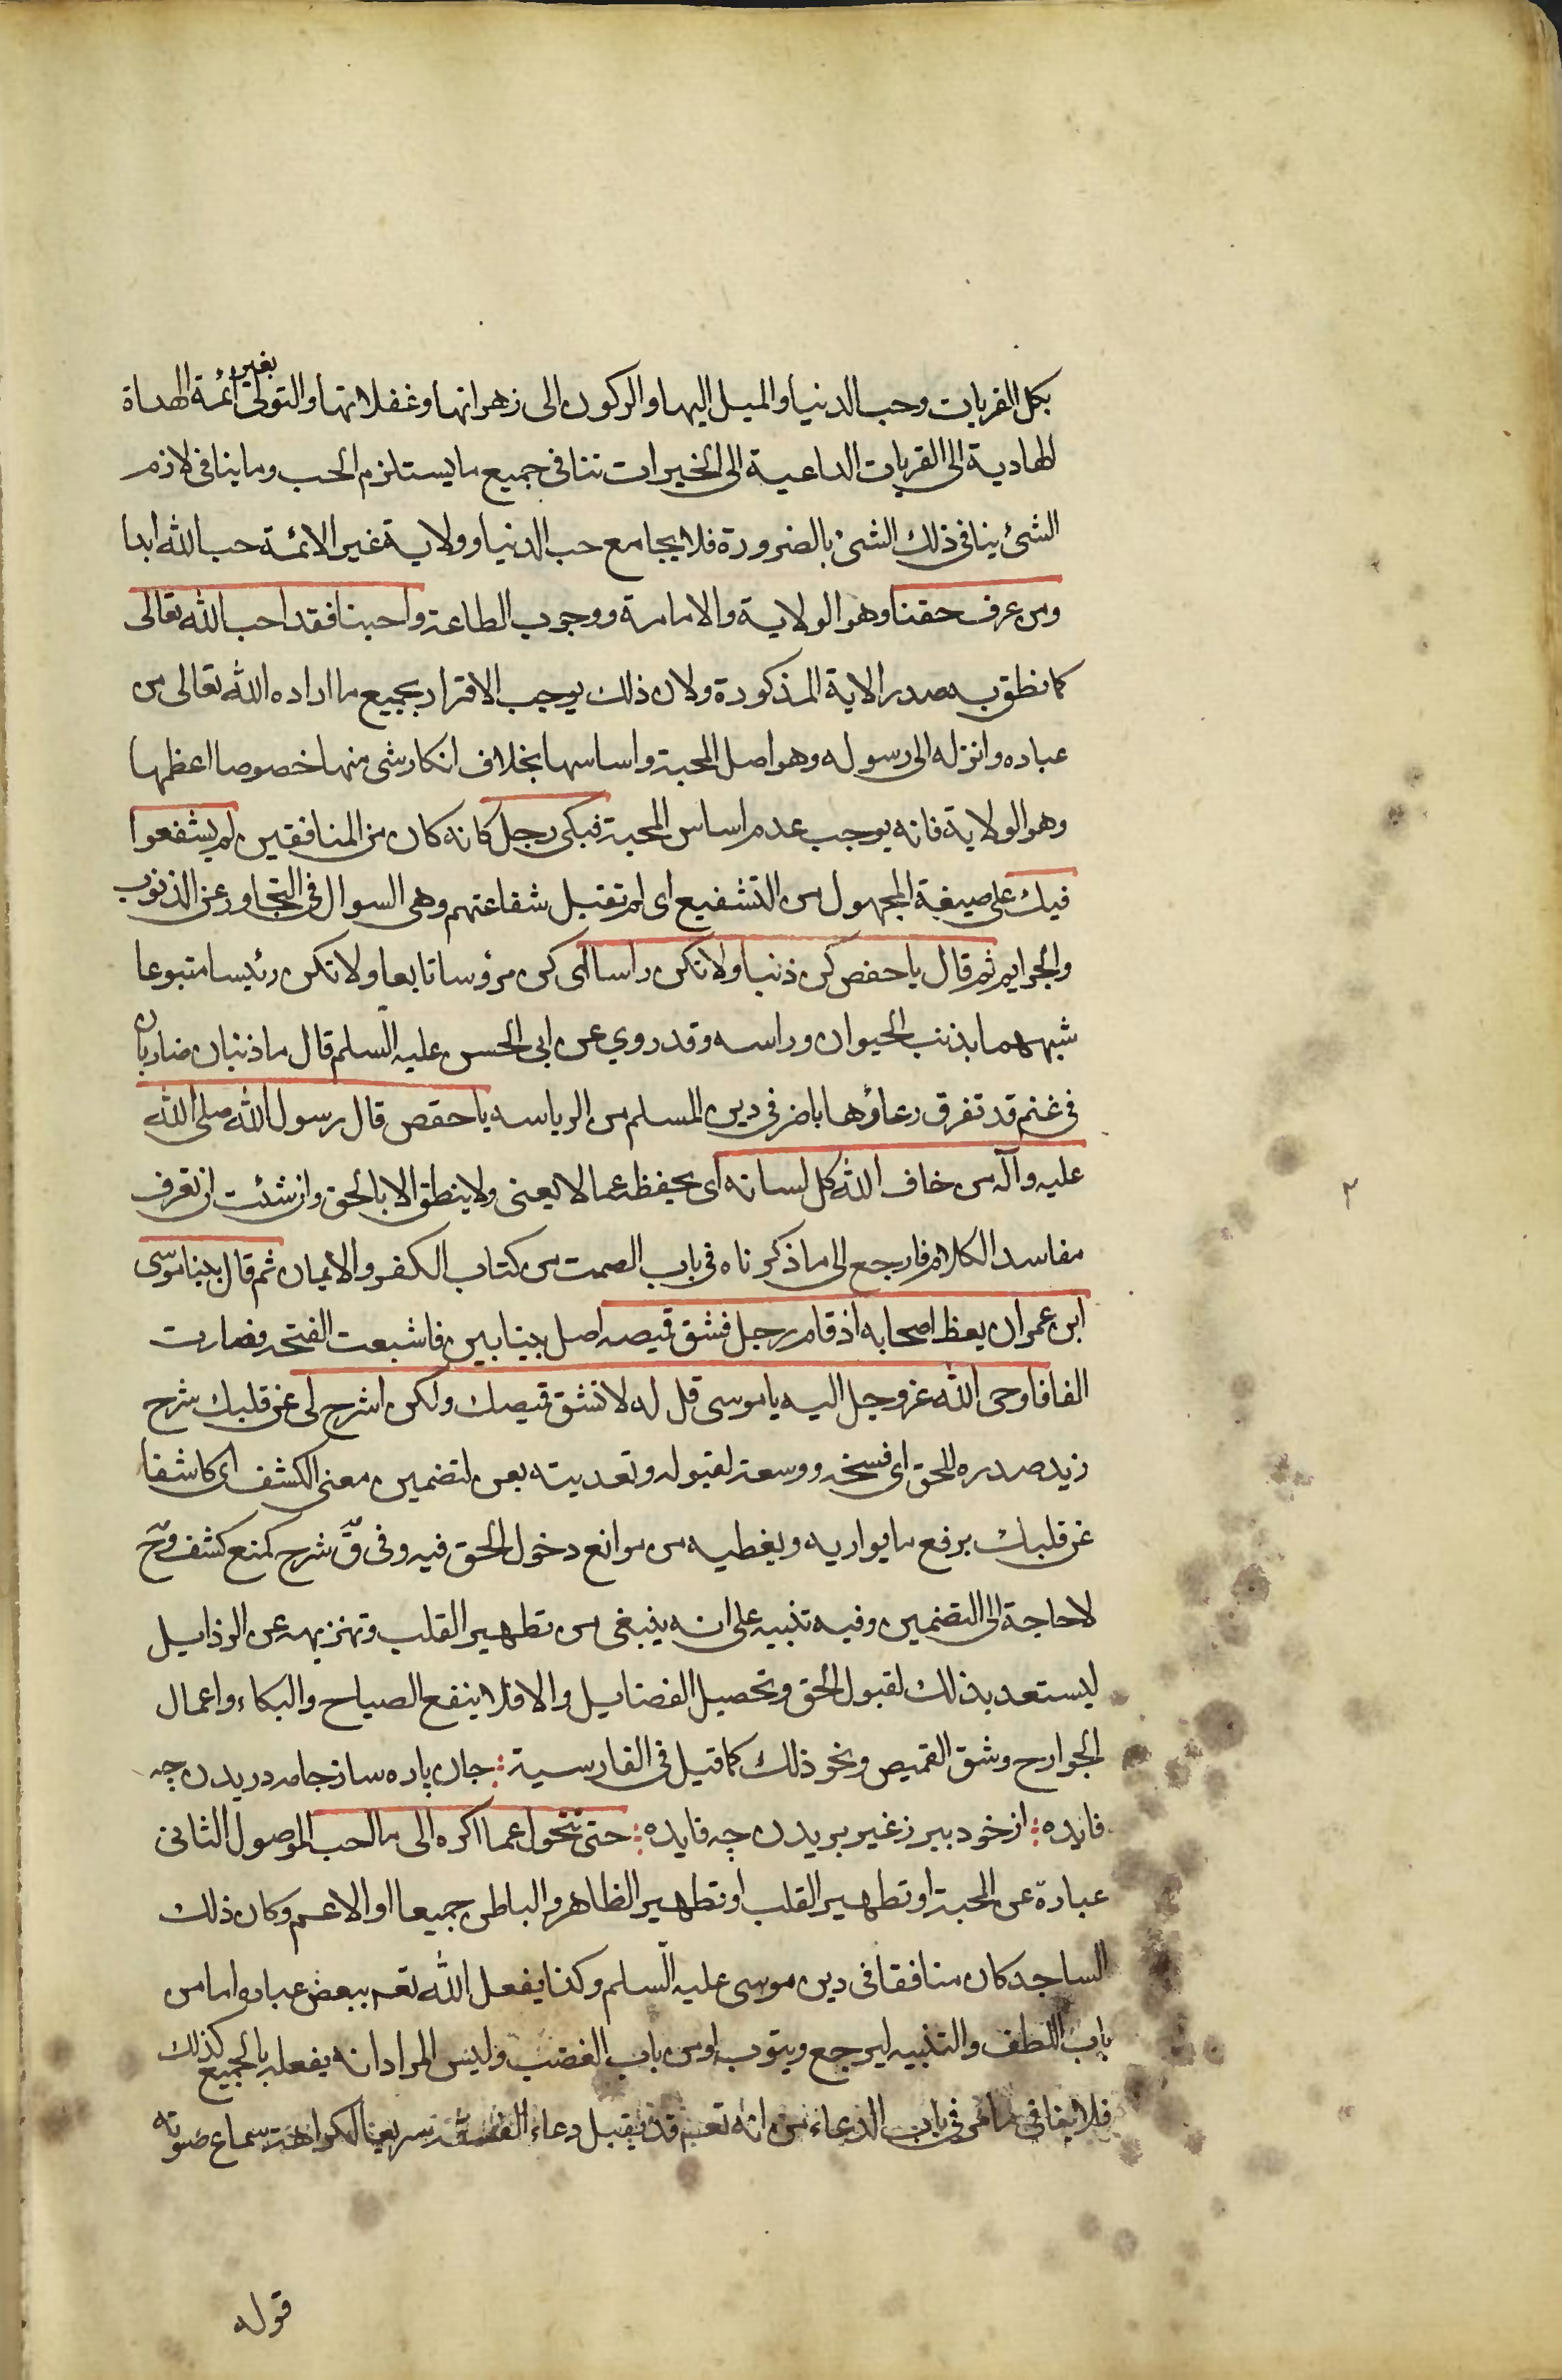 بكل القربات وحب الدنيا والميل اليها والركون الى زهراتها وغفلاتها والتولى بغير ائمة الهداة
الهادية الى القربات الداعية الى الخيرات تنافى جميع ما يستلزم الحب وما ينافى لازم
الشئ ينافى ذلك الشئ بالضرورة فلا يجامع حب الدنيا وولاية غير الائمة حب الله ابدا
ومن عرف حقنا وهو الولاية والامامة ووجوب الطاعة واحبنا فقد احب الله تعالى
كما نطق به صدر الاية المذكورة ولان ذلك يوجب الاقرار بجميع ما اراده الله تعالى من
عباده وانزله الى رسوله وهو اصل المحبة واساسها بخلاف انكار شى منها خصوصا اعظمها
وهو الولاية فانه يوجب عدم اساس المحبة فبكى رجل كانه كان من المنافقين لم يشفعوا
فيك على صيغة المجهول من التشفيع اى لم تقبل شفاعتهم وهى السوال فى التجاوز عن الذنوب
والجرايم ثم قال يا حفص كن ذنبا ولا تكن راسا اى كن مرؤسا تابعا ولا تكن رئيسا متبوعا
شبههما بذنب الحيوان وراسه وقد روي عن ابى الحسن عليه السلم قال ما ذئبان ضاريان
فى غنم قد تفرق رعاؤها باضر فى دين المسلم من الرياسه يا حفص قال رسول الله صلى الله
عليه وآله من خاف الله كل لسانه اى يحفظه عما لا يعنى ولا ينطق الا بالحق وان شئت ان تعرف
مفاسد الكلام فارجع الى ما ذكرناه فى باب الصمت من كتاب الكفر والايمان ثم قال بينا موسى
ابن عمران يعظ اصحابه اذ قام رجل فشق قميصه اصل بينا بين فاشبعت الفتحه فصارت
الفا فاوحى الله عز وجل اليه يا موسى قل له لا تشق قميصك ولكن اشرح لى عن قلبك شرح
زيد صدره للحق اى فسخه ووسعه لقبوله وتعديته بعن لتضمين معنى الكشف اى كاشفا
عن قلبك برفع ما يواريه ويغطيه من موانع دخول الحق فيه وفى ق شرح كمنع كشف وح
لا حاجة الى التضمين وفيه تنبيه على انه ينبغى من تطهير القلب وتنزيهه عن الرذايل
ليستعد بذلك لقبول الحق وتحصيل الفضايل والا فلا ينفع الصياح والبكاء واعمال
الجوارح وشق القميص ونحو ذلك كما قيل فى الفارسية جان پاره ساز جامه دريدن چه
فايده از خود ببر ز غير بريدن چه فايده حتى تتحول عما اكره الى ما احب الموصول الثانى
عبارة عن المحبة او تطهير القلب او تطهير الظاهر والباطن جميعا او الاعم وكان ذلك
الساجد كان منافقا فى دين موسى عليه السلم وكذا يفعل الله تعه ببعض عباده اما من
باب اللطف والتنبيه ليرجع ويتوب او من باب الغضب وليس المراد انه يفعله بالجميع كذلك
فلا ينافى ما مر فى باب الدعاء من انه تعه قد يقبل دعاء الفسقة سريعا لكراهة سماع صوته
قوله
٢